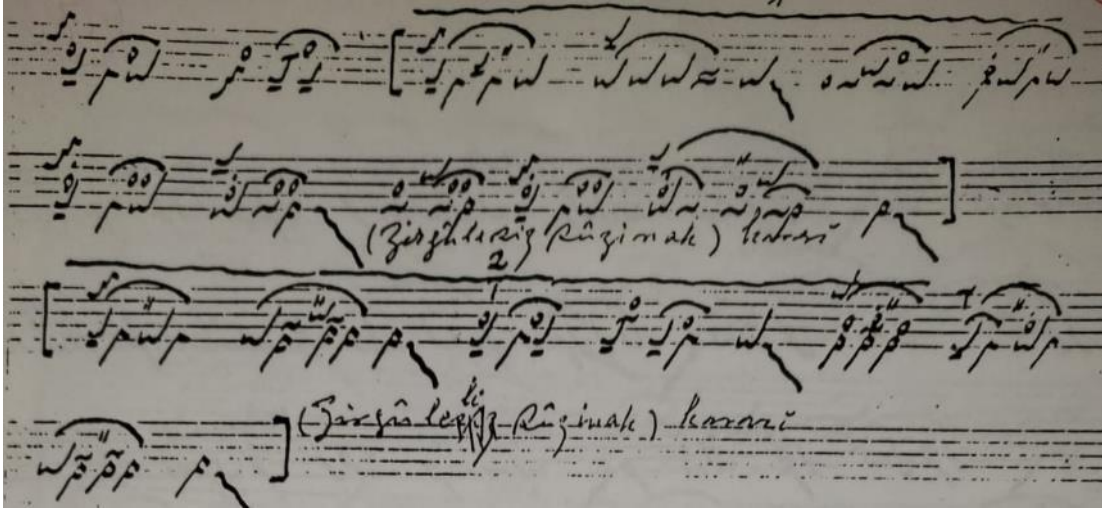 (Zirgûlesiz Sûzinak) kararı
2
(Zirgûleli Sûzinak) kararı